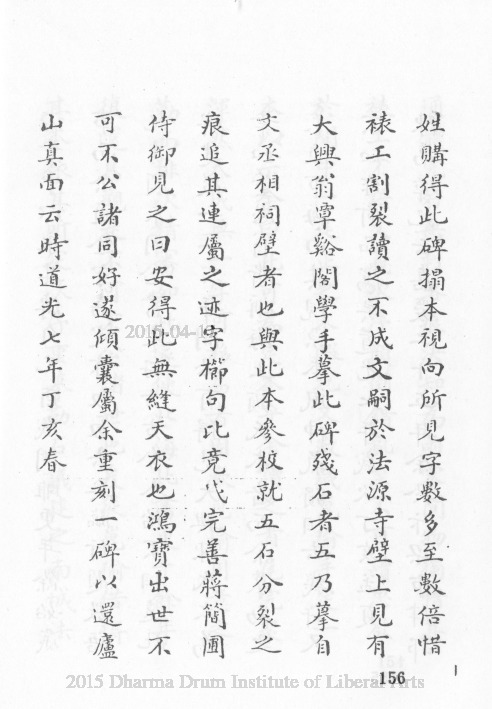 姓購得此碑搨本視向所見字數多至數倍惜
裱工割裂讀之不成文嗣於法源寺壁上見有
大興翁覃谿閣學手摹此碑殘石者五乃摹自
文丞相祠壁者也與此本參校就五石分裂之
痕追其連屬之迹字櫛句比竟成完善蔣簡圃
侍御見之曰安得此無縫天衣也鴻寶出世不
可不公諸同好遂傾囊屬余重刻一碑以還廬
山真面云時道光七年丁亥春
156
2015 Dharma Drum Institute of Liberal Arts